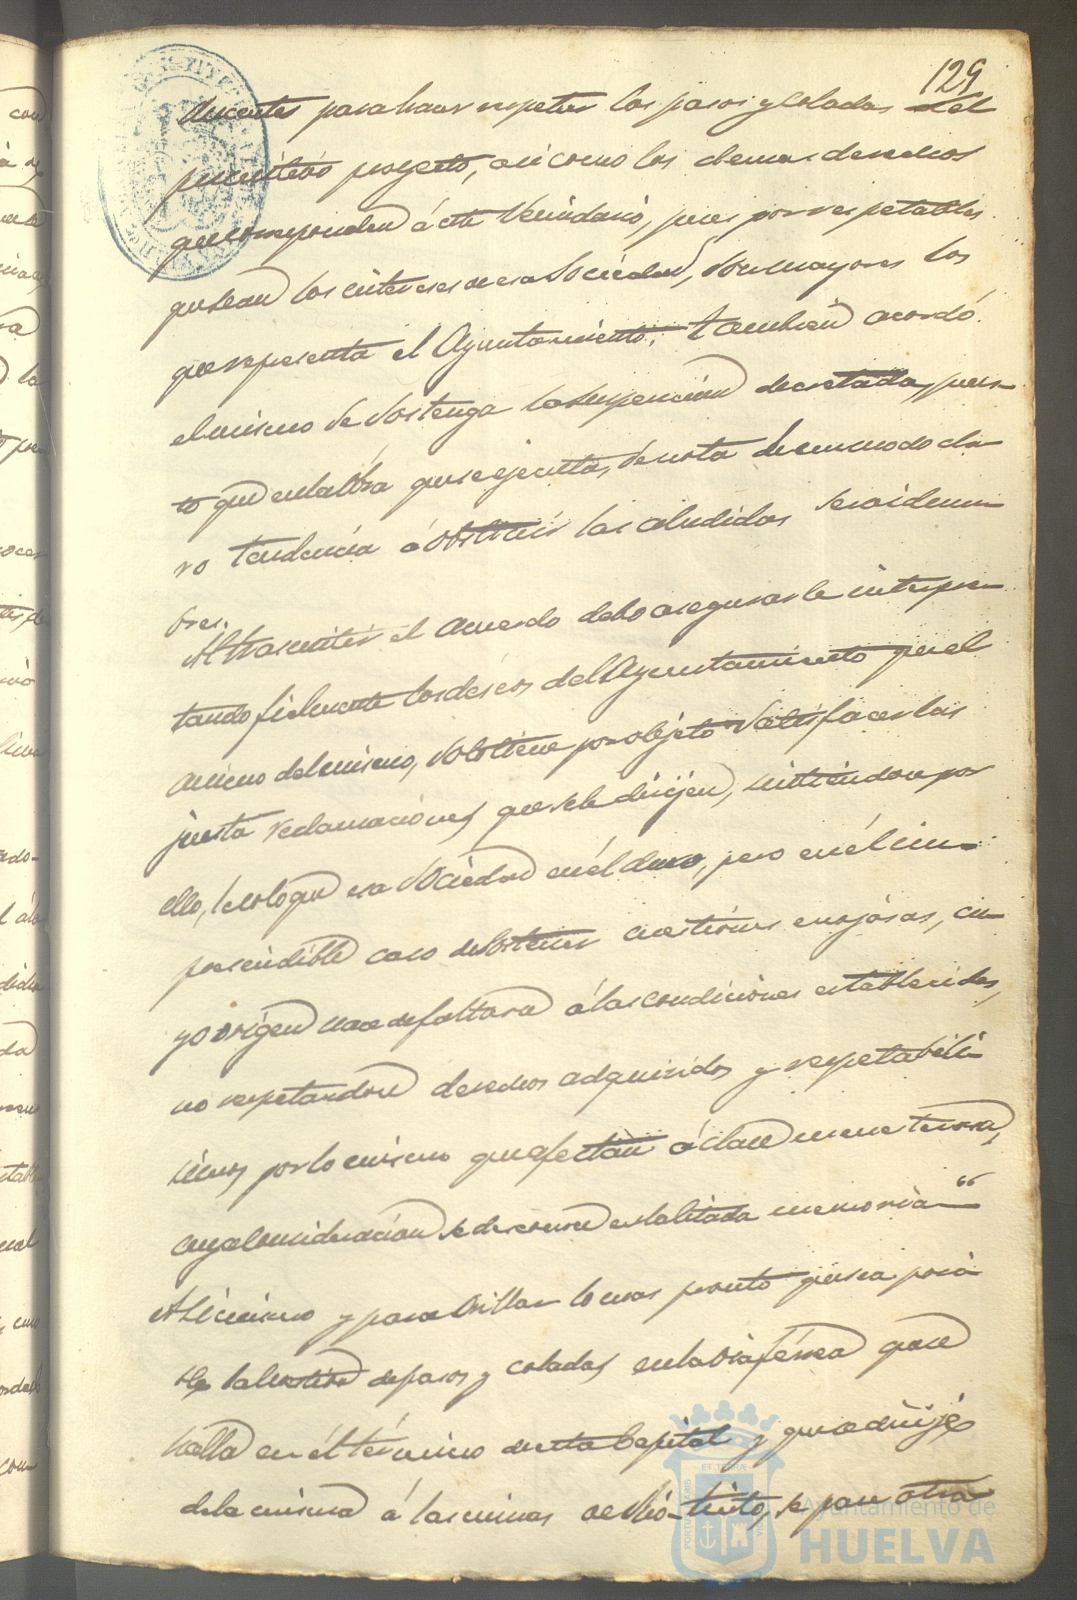 129
ducentes para hacer respetar los pasos y coladas del
primitivo proyecto, asi como los demas derechos
que corresponden á este Vecindario, pues por respetables
que sean los intereses de esa Sociedad, son mayores los
que representa el Ayuntamiento. Tambien acordó
el mismo se sostenga la suspension decretada, pues-
to que en la obra que se ejecuta, se nota de un modo cla-
ro tendencia á obstruir las aludidas servidum-
bres.
Al trasmitir el acuerdo debo asegurarle interpre-
tando fielmente los deseos del Ayuntamiento que el
animo del mismo, solo tiene por objeto satisfacer las
justas reclamaciones que se le dirijen, sintiendo
por
ello, lo que esa Sociedad en él, pero en el im-
prescindible caso de sostener cuestiones enojosas, cu-
yo origen nace de faltarse á las condiciones establecidas,
no respetandose derechos adquiridos y respetabili-
simos por lo mismo que afectan á clase menesterosa,
cuya consideracion se desconoce en la citada memoria"
Asimismo y para orillar lo mas pronto que sea posi-
ble la cuestion de pasos y coladas en la via férrea que se
halla en el término de esta Capital y que se dirije
de la misma á las minas de Rio-tinto, se pase otra
Ayuntamiento de
HUELVA